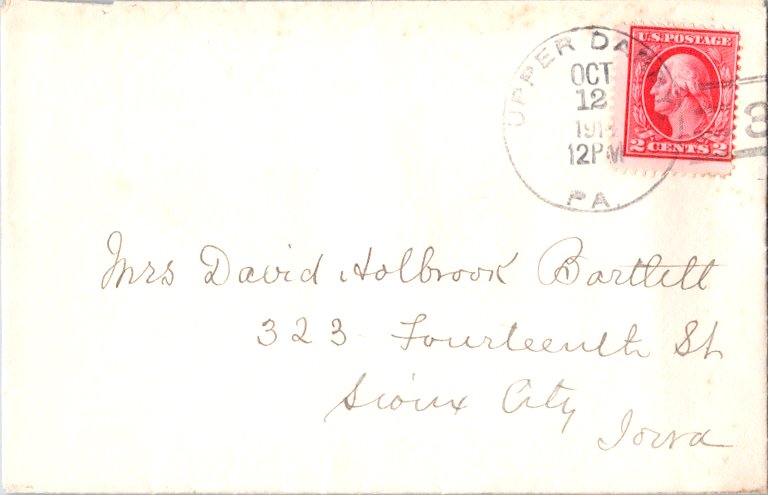 UPPER DARBY
OCT
12
1914
12PM
PA.
U.S. POSTAGE
2 CENTS 2
8
Mrs David Holbrook Bartlett
323 Fourteenth St
Sioux City
Iowa